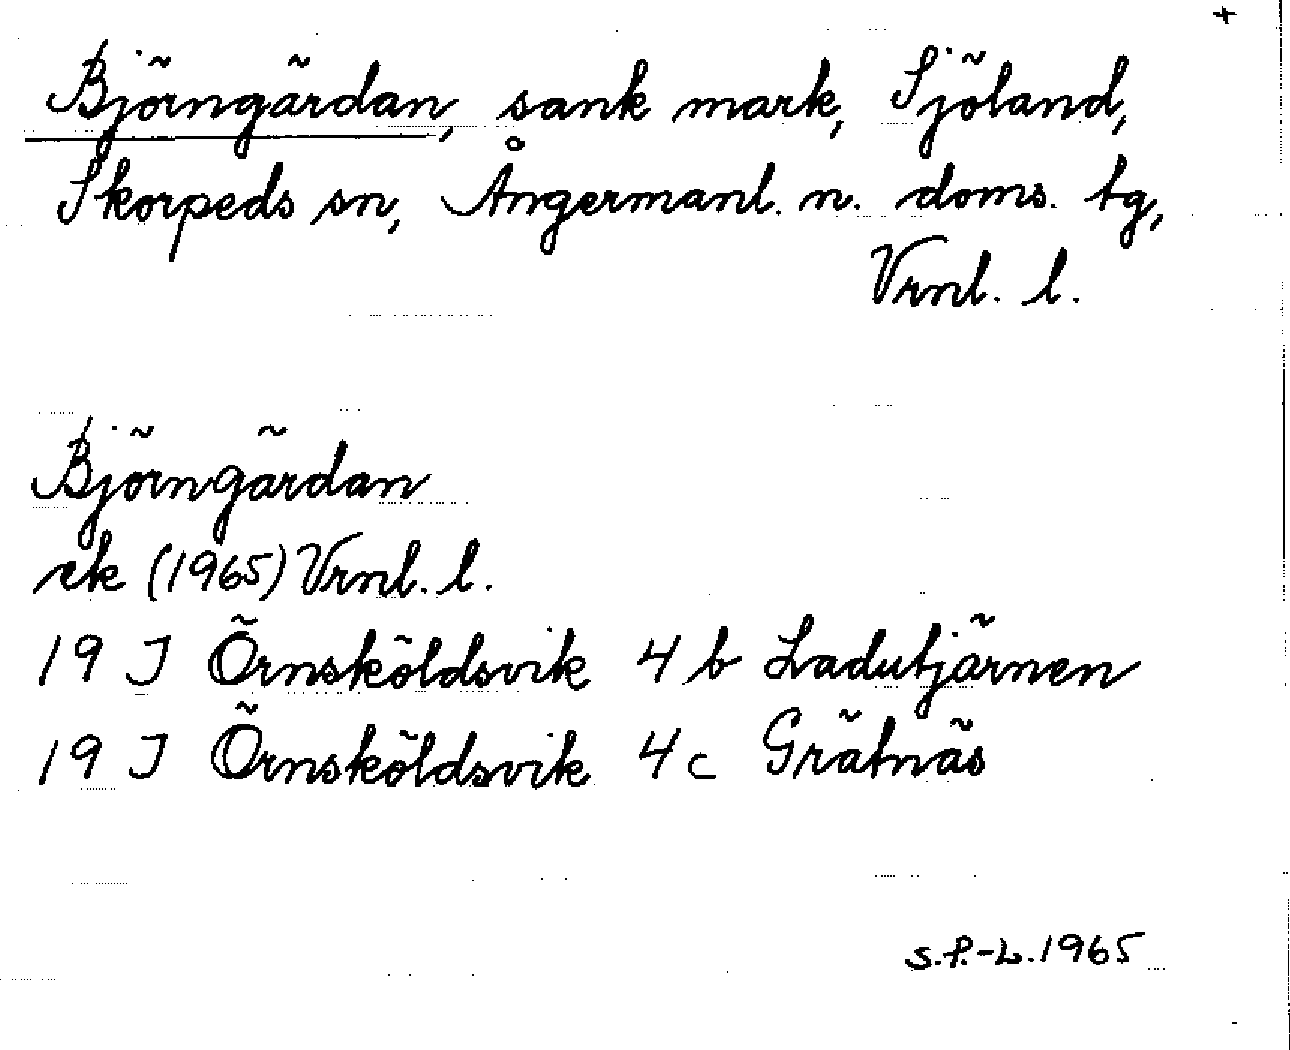 +
Björngärdan, sank mark, Sjöland,
Skorpeds sn, Ångermanl. n. doms. tg,
Vrnl. l.
Björngärdan
rk (1965) Vrnl. l.
19 J Örnsköldsvik 4 b Ladutjärnen
19 J Örnsköldsvik 4 c Grätnäs
S.P.-L. 1965